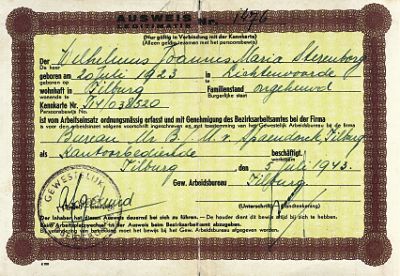 AUSWEIS Nr. 1476
LEGITIMATIE
(Nur gültig in Verbindung mit der Kennkarte)
(Alleen geldig tezamen met het persoonsbewijs)
Der Wilhelmus Joannes Maria Sterenborg
De heer
geboren am 20 juli 1923 in Lichtenvoorde
geboren
wohnhaft in Tilburg Familienstand ongehuwd
wonende te Burgerlijke staat
Kennkarte Nr. 038520
Persoonsbewijs No.
ist vom Arbeitseinsatz ordnungsmässig erfasst und mit Genehmigung des Bezirksarbeitsamtes bei der Firma
is voor den arbeidsinzet volgens voorschrift ingeschreven en met toestemming van het Gewestelijk Arbeidsbureau bij de firma
Bureau Mr. B. M. v. Spaendonck, Tilburg
als Kantoorbediende beschäftigt.
Tilburg, den 5 juli 1943.
GEWESTELIJK
Gew. Arbeidsbureau Tilburg.
(Unterschrift) (Handtekening)
Der Inhaber hat diesen Ausweis dauernd bei sich zu führen. — De houder dient dit bewijs altijd bij zich te hebben.
Beim Arbeitsplatzwechsel ist der Ausweis dem Bezirksarbeitsamt abzugeben.
Bij verandering van betrekking moet het bewijs bij het Gew. Arbeidsbureau afgegeven worden.